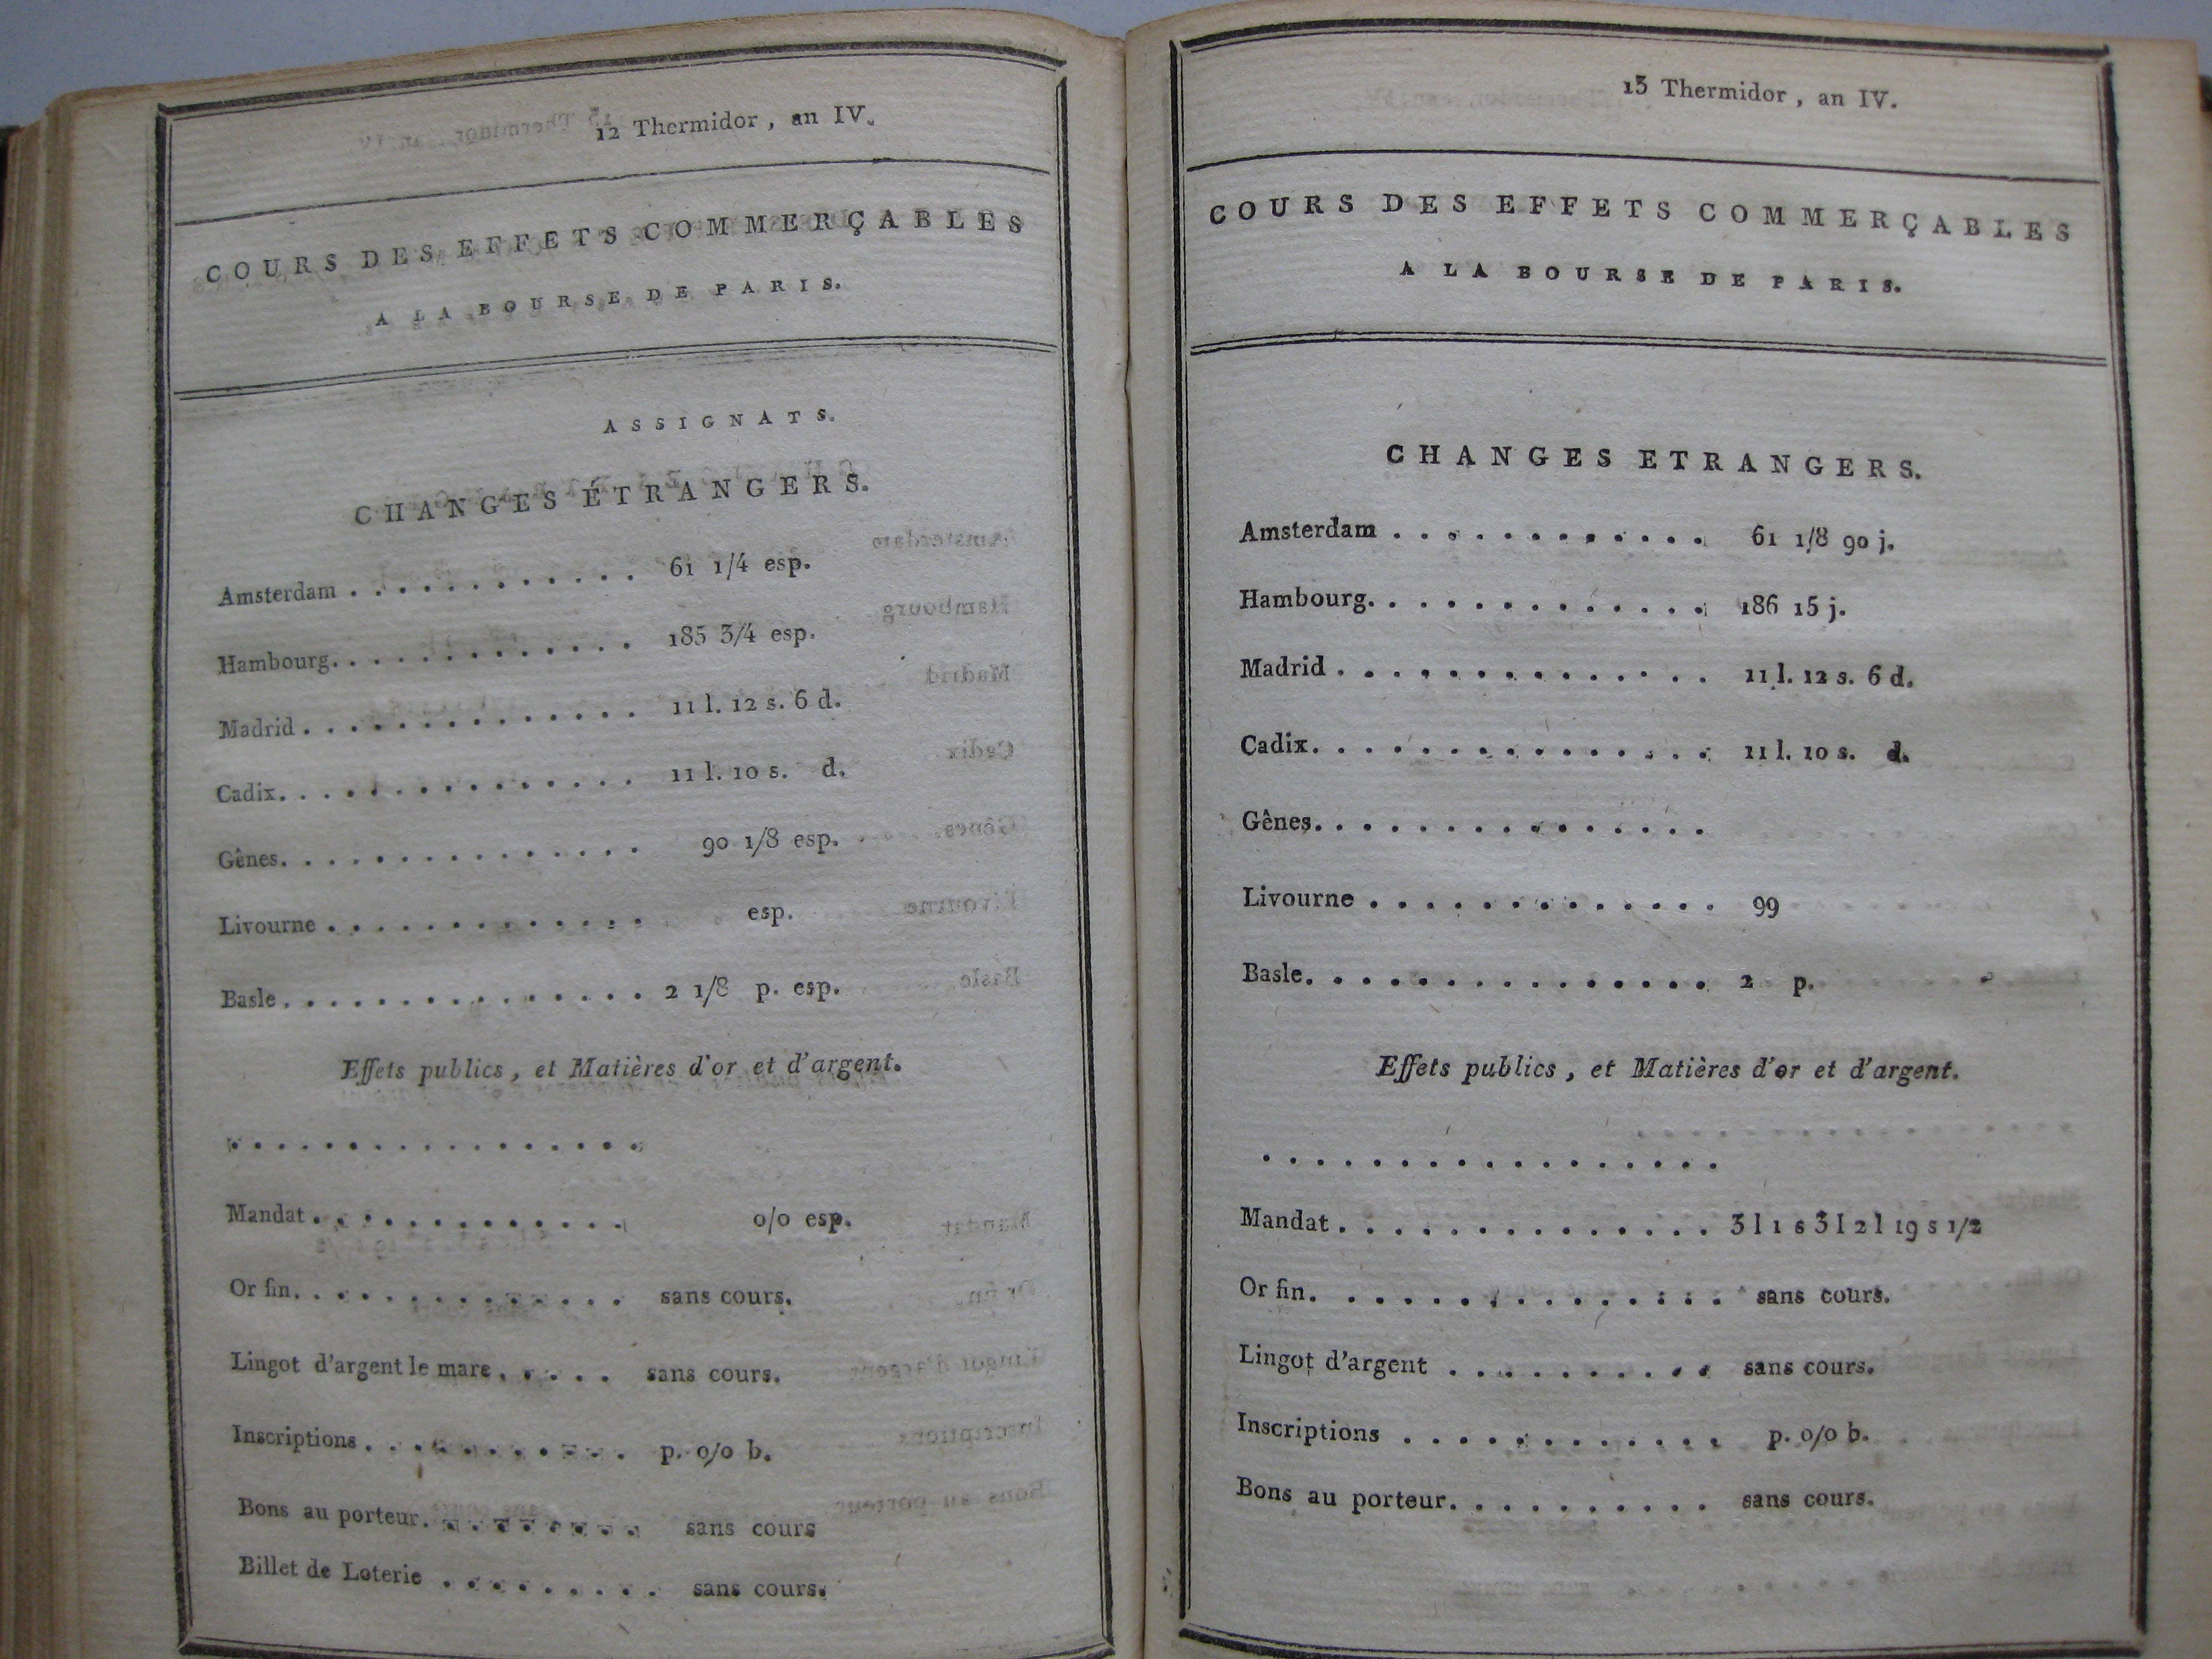 12 Thermidor, an IV.
COURS DES EFFETS COMMERÇABLES
A LA BOURSE DE PARIS.
ASSIGNATS.
CHANGES ÉTRANGERS.
Amsterdam . . . . . . . . . . . . 61 1/4 esp.
Hambourg. . . . . . . . . . . . . 185 3/4 esp.
Madrid . . . . . . . . . . . . . . 11 l. 12 s. 6 d.
Cadix. . . . . . . . . . . . . . . 11 l. 10 s. d.
Gênes. . . . . . . . . . . . . . . 90 1/8 esp.
Livourne . . . . . . . . . . . . . esp.
Basle . . . . . . . . . . . . . . . 2 1/8 p. esp.
Effets publics, et Matières d'or et d'argent.
. . . . . . . . . . . . . . . . .
Mandat . . . . . . . . . . . . . 0/0 esp.
Or fin. . . . . . . . . . . . . . sans cours.
Lingot d'argent le marc . . . . . sans cours.
Inscriptions . . . . . . . . . . . p. 0/0 b.
Bons au porteur. . . . . . . . . sans cours
Billet de Loterie . . . . . . . . . sans cours.
13 Thermidor, an IV.
COURS DES EFFETS COMMERÇABLES
A LA BOURSE DE PARIS.
CHANGES ETRANGERS.
Amsterdam . . . . . . . . . . . . 61 1/8 90 j.
Hambourg. . . . . . . . . . . . . 186 15 j.
Madrid . . . . . . . . . . . . . . 11 l. 12 s. 6 d.
Cadix. . . . . . . . . . . . . . . 11 l. 10 s. d.
Gênes. . . . . . . . . . . . . . .
Livourne . . . . . . . . . . . . . 99
Basle. . . . . . . . . . . . . . . 2 p.
Effets publics, et Matières d'or et d'argent.
. . . . . . . . . . . . . . . . .
Mandat . . . . . . . . . . . . . . 3 l 1 s 3 l 2 l 19 s 1/2
Or fin. . . . . . . . . . . . . . . sans cours.
Lingot d'argent . . . . . . . . . . sans cours.
Inscriptions . . . . . . . . . . . . p. 0/0 b.
Bons au porteur. . . . . . . . . . sans cours.